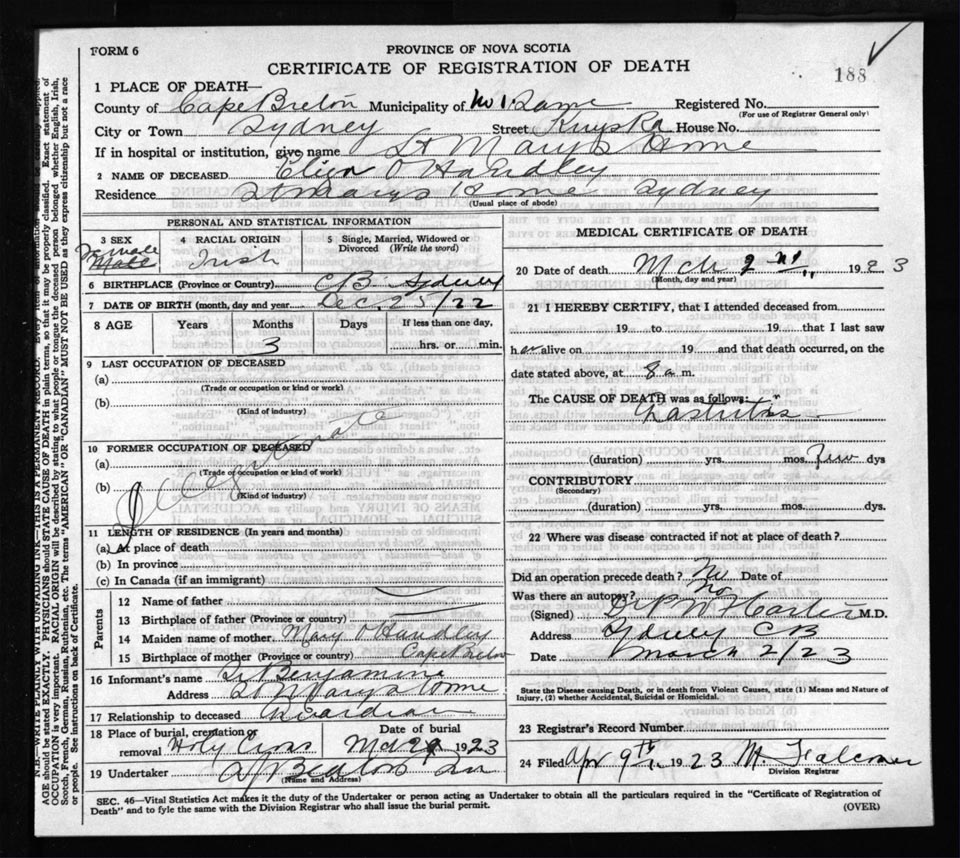 FORM 6
PROVINCE OF NOVA SCOTIA
CERTIFICATE OF REGISTRATION OF DEATH
188
1 PLACE OF DEATH—
County of Cape Breton Municipality of Same Registered No.
(For use of Registrar General only)
City or Town Sydney Street House No.
If in hospital or institution, give name St Marys Home
2 NAME OF DECEASED Eliza O Handley
Residence St Marys Home Sydney
(Usual place of abode)
PERSONAL AND STATISTICAL INFORMATION
3 SEX
Female
Male
4 RACIAL ORIGIN
Irish
5 Single, Married, Widowed or Divorced (Write the word)
6 BIRTHPLACE (Province or Country) CB Sydney
7 DATE OF BIRTH (month, day and year) Dec 25/22
8 AGE Years Months Days If less than one day,
3 hrs. or min.
9 LAST OCCUPATION OF DECEASED
(a)
(Trade or occupation or kind or work)
(b)
(Kind of industry)
10 FORMER OCCUPATION OF DECEASED
(a)
(Trade or occupation or kind of work)
(b)
(Kind of industry)
11 LENGTH OF RESIDENCE (In years and months)
(a) At place of death
(b) In province
(c) In Canada (if an immigrant)
Parents
12 Name of father
13 Birthplace of father
14 Maiden name of mother Mary O Handley
15 Birthplace of mother (Province or country) Cape Breton
16 Informant's name Sr Benjamine
Address St Marys Home
17 Relationship to deceased Guardian
18 Place of burial, cremation or removal Holy Cross
Date of burial
Mar 1923
19 Undertaker A J Beaton
(Name and Address)
MEDICAL CERTIFICATE OF DEATH
20 Date of death Mch 2nd, 1923
(Month, day and year)
21 I HEREBY CERTIFY, that I attended deceased from
19 to 19 that I last saw
her alive on 19 and that death occurred, on the
date stated above, at 8 a m.
The CAUSE OF DEATH was as follows:
Gastritis
(duration) yrs. mos. Few dys
CONTRIBUTORY
(Secondary)
(duration) yrs. mos. dys.
22 Where was disease contracted if not at place of death?
Did an operation precede death? No Date of
Was there an autopsy? No
(Signed) M.D.
Address Sydney CB
Date March 2/23
State the Disease causing Death, or in death from Violent Causes, state (1) Means and Nature of Injury, (2) whether Accidental, Suicidal or Homicidal.
23 Registrar's Record Number
24 Filed Apr 9th, 1923 M. Falconer
Division Registrar
SEC. 46—Vital Statistics Act makes it the duty of the Undertaker or person acting as Undertaker to obtain all the particulars required in the "Certificate of Registration of
Death" and to fyle the same with the Division Registrar who shall issue the burial permit.
(OVER)
N.B.—WRITE PLAINLY WITH UNFADING INK—THIS IS A PERMANENT RECORD. Every item of information
AGE should be stated EXACTLY. PHYSICIANS should STATE CAUSE OF DEATH in plain terms, so that it may be properly classified. Exact statement of
OCCUPATION is very important. RACIAL ORIGIN will be described by stating to what people or tongue the deceased person belonged whether English, Irish,
Scotch, French, German, Russian, Ruthenian, etc. The terms "AMERICAN" OR "CANADIAN" MUST NOT BE USED as they express citizenship but not a race
or people. See instructions on back of Certificate.